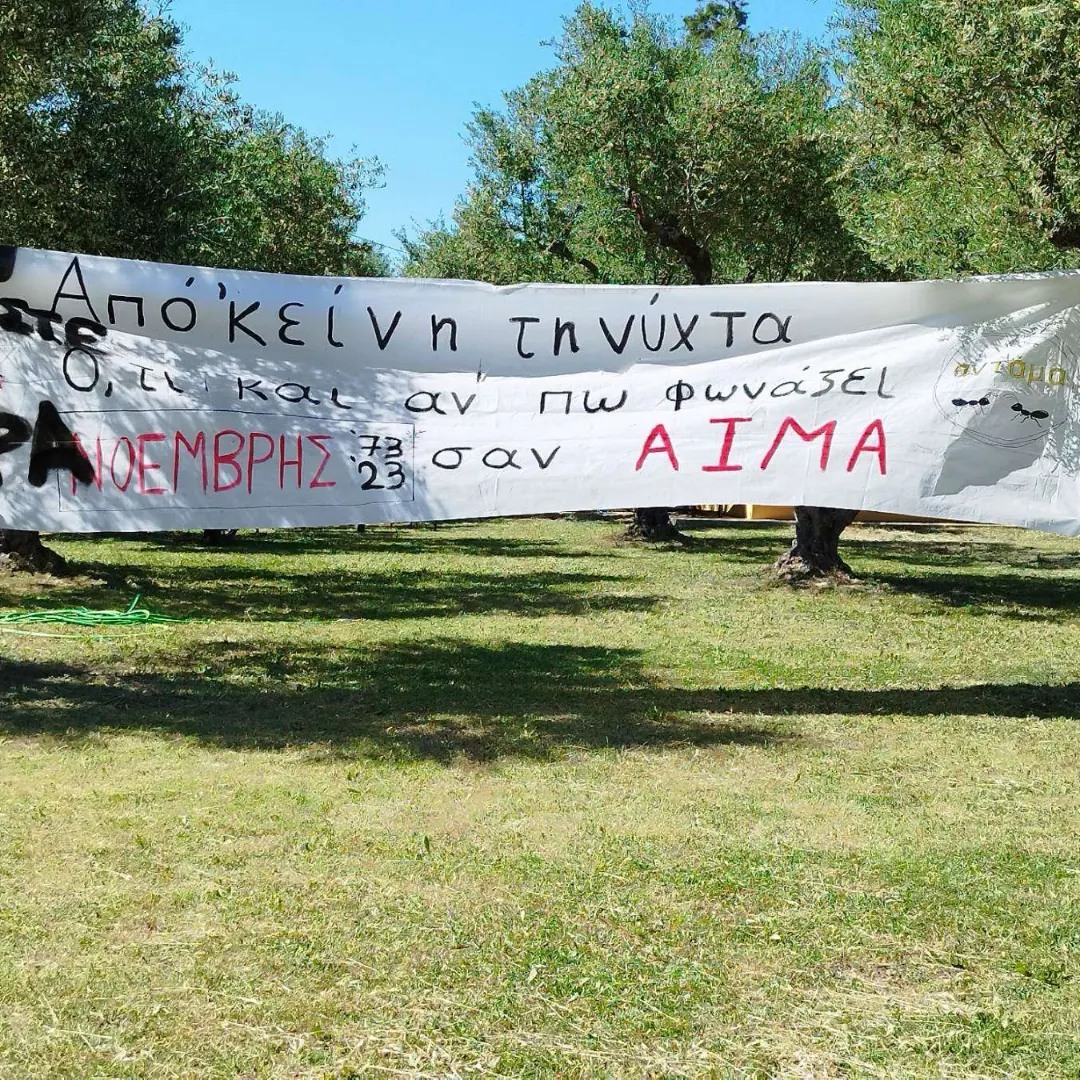 Από 'κείνη τη νύχτα
στε
Ό,τι και αν πω φωνάζει
αντάμα
ΡΑ
ΝΟΕΜΒΡΗΣ '73 '23 σαν ΑΙΜΑ